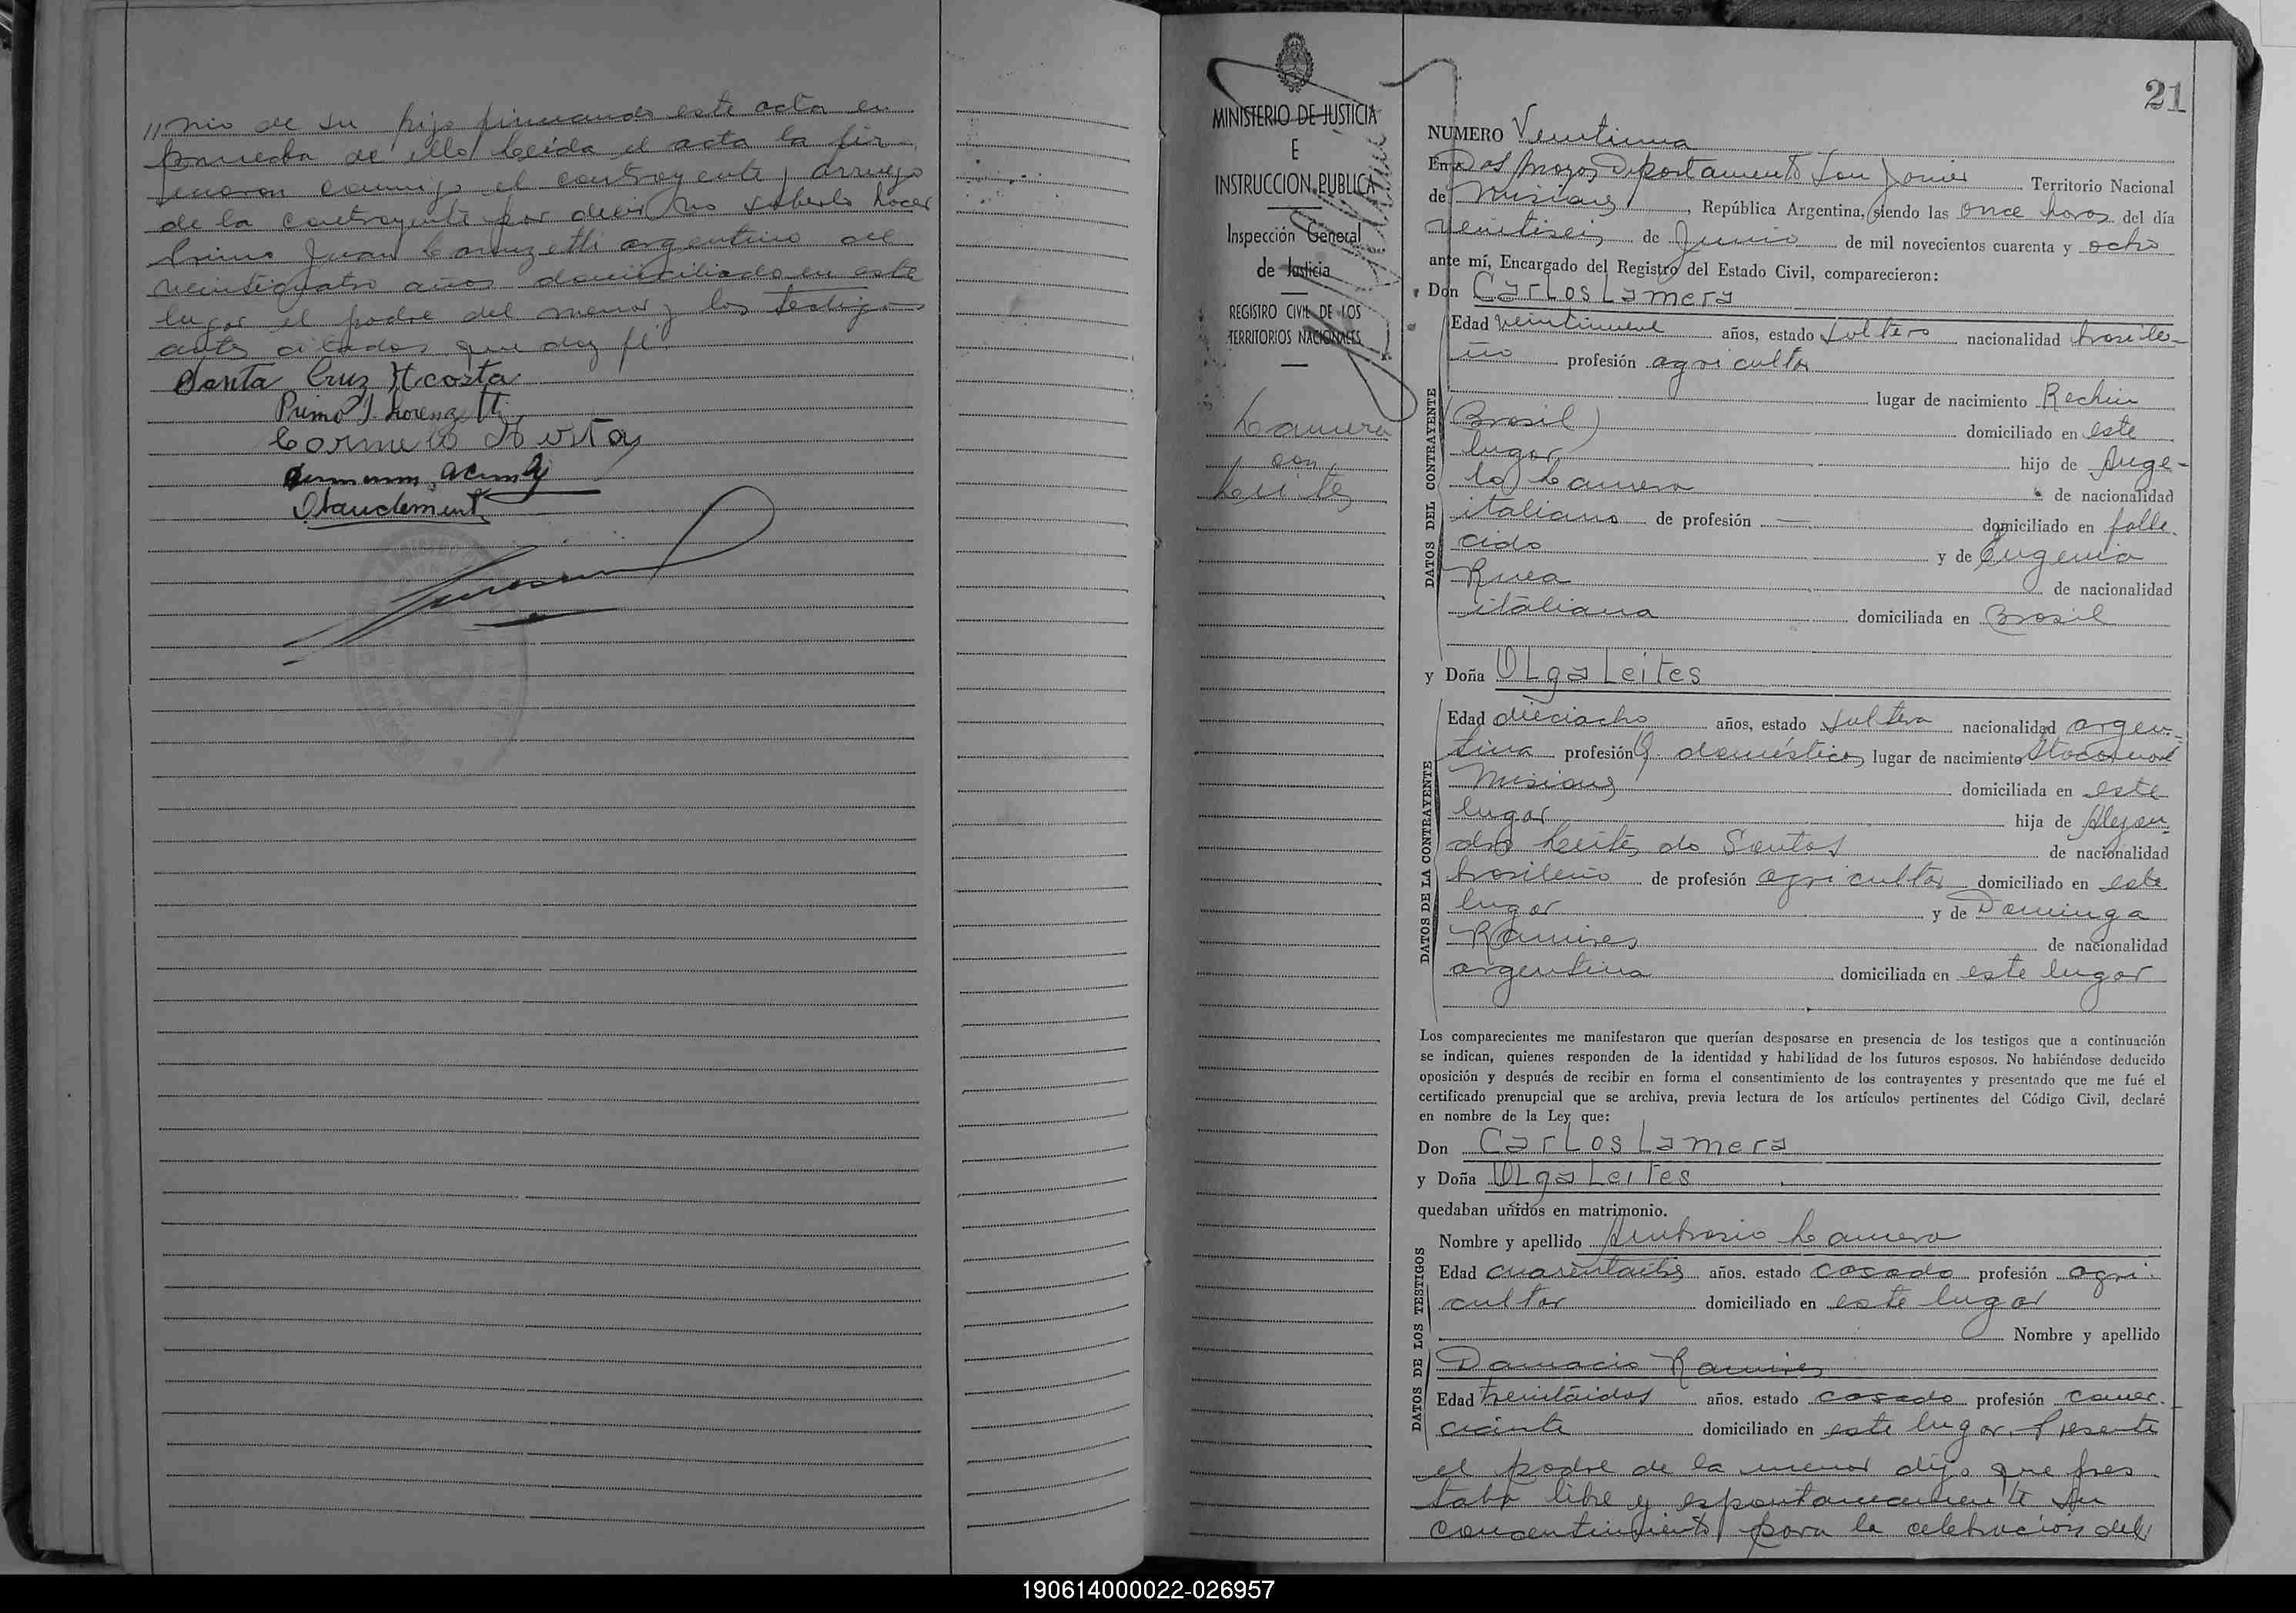 // nio de su hijo firmando este acta en
prueba de ello leída el acta la fir-
maron conmigo el contrayente, arruego
de la contrayente por decir no saberlo hacer
Primo Juan Lorenzetti argentino de
veinticuatro años domiciliado en este
lugar el padre del menor y los testigos
antes citados que doy fé.
Santa Cruz Acosta
Primo J. Lorenzetti
Carmelo Acosta
21
MINISTERIO DE JUSTICIA
E
INSTRUCCION PUBLICA
Inspección General
de Justicia
REGISTRO CIVIL DE LOS
TERRITORIOS NACIONALES
Lamera
con
Leites
NUMERO Veintiuna
En Dos Arroyos Departamento San Javier Territorio Nacional
de Misiones, República Argentina, siendo las once horas del día
veintiseis de Junio de mil novecientos cuarenta y ocho
ante mí, Encargado del Registro del Estado Civil, comparecieron:
Don Carlos Lamera
DATOS DEL CONTRAYENTE
Edad veintinueve años, estado soltero nacionalidad brasile-
ño profesión agricultor
lugar de nacimiento Rechin
(Brasil) domiciliado en este
lugar hijo de Ange-
lo Lamera de nacionalidad
italiano de profesión — domiciliado en falle-
cido y de Eugenia
de nacionalidad
italiana domiciliada en Brasil
y Doña Olga Leites
DATOS DE LA CONTRAYENTE
Edad dieciocho años, estado soltera nacionalidad argen-
tina profesión q. domésticos lugar de nacimiento
Misiones domiciliada en este
lugar hija de Alejan-
dro Leites do Santos de nacionalidad
brasileño de profesión agricultor domiciliado en este
lugar y de Dominga
Ramires de nacionalidad
argentina domiciliada en este lugar
Los comparecientes me manifestaron que querían desposarse en presencia de los testigos que a continuación
se indican, quienes responden de la identidad y habilidad de los futuros esposos. No habiéndose deducido
oposición y después de recibir en forma el consentimiento de los contrayentes y presentado que me fué el
certificado prenupcial que se archiva, previa lectura de los artículos pertinentes del Código Civil, declaré
en nombre de la Ley que:
Don Carlos Lamera
y Doña Olga Leites
quedaban unidos en matrimonio.
DATOS DE LOS TESTIGOS
Nombre y apellido Ambrosio Lamera
Edad años, estado casado profesión agri-
cultor domiciliado en este lugar
Nombre y apellido
Damacio Ramires
Edad treintaidos años, estado casado profesión comer-
ciante domiciliado en este lugar. Presente
el padre de la menor dijo que pres-
taba libre y espontaneamente su
concentimiento para la celebración del//
190614000022-026957